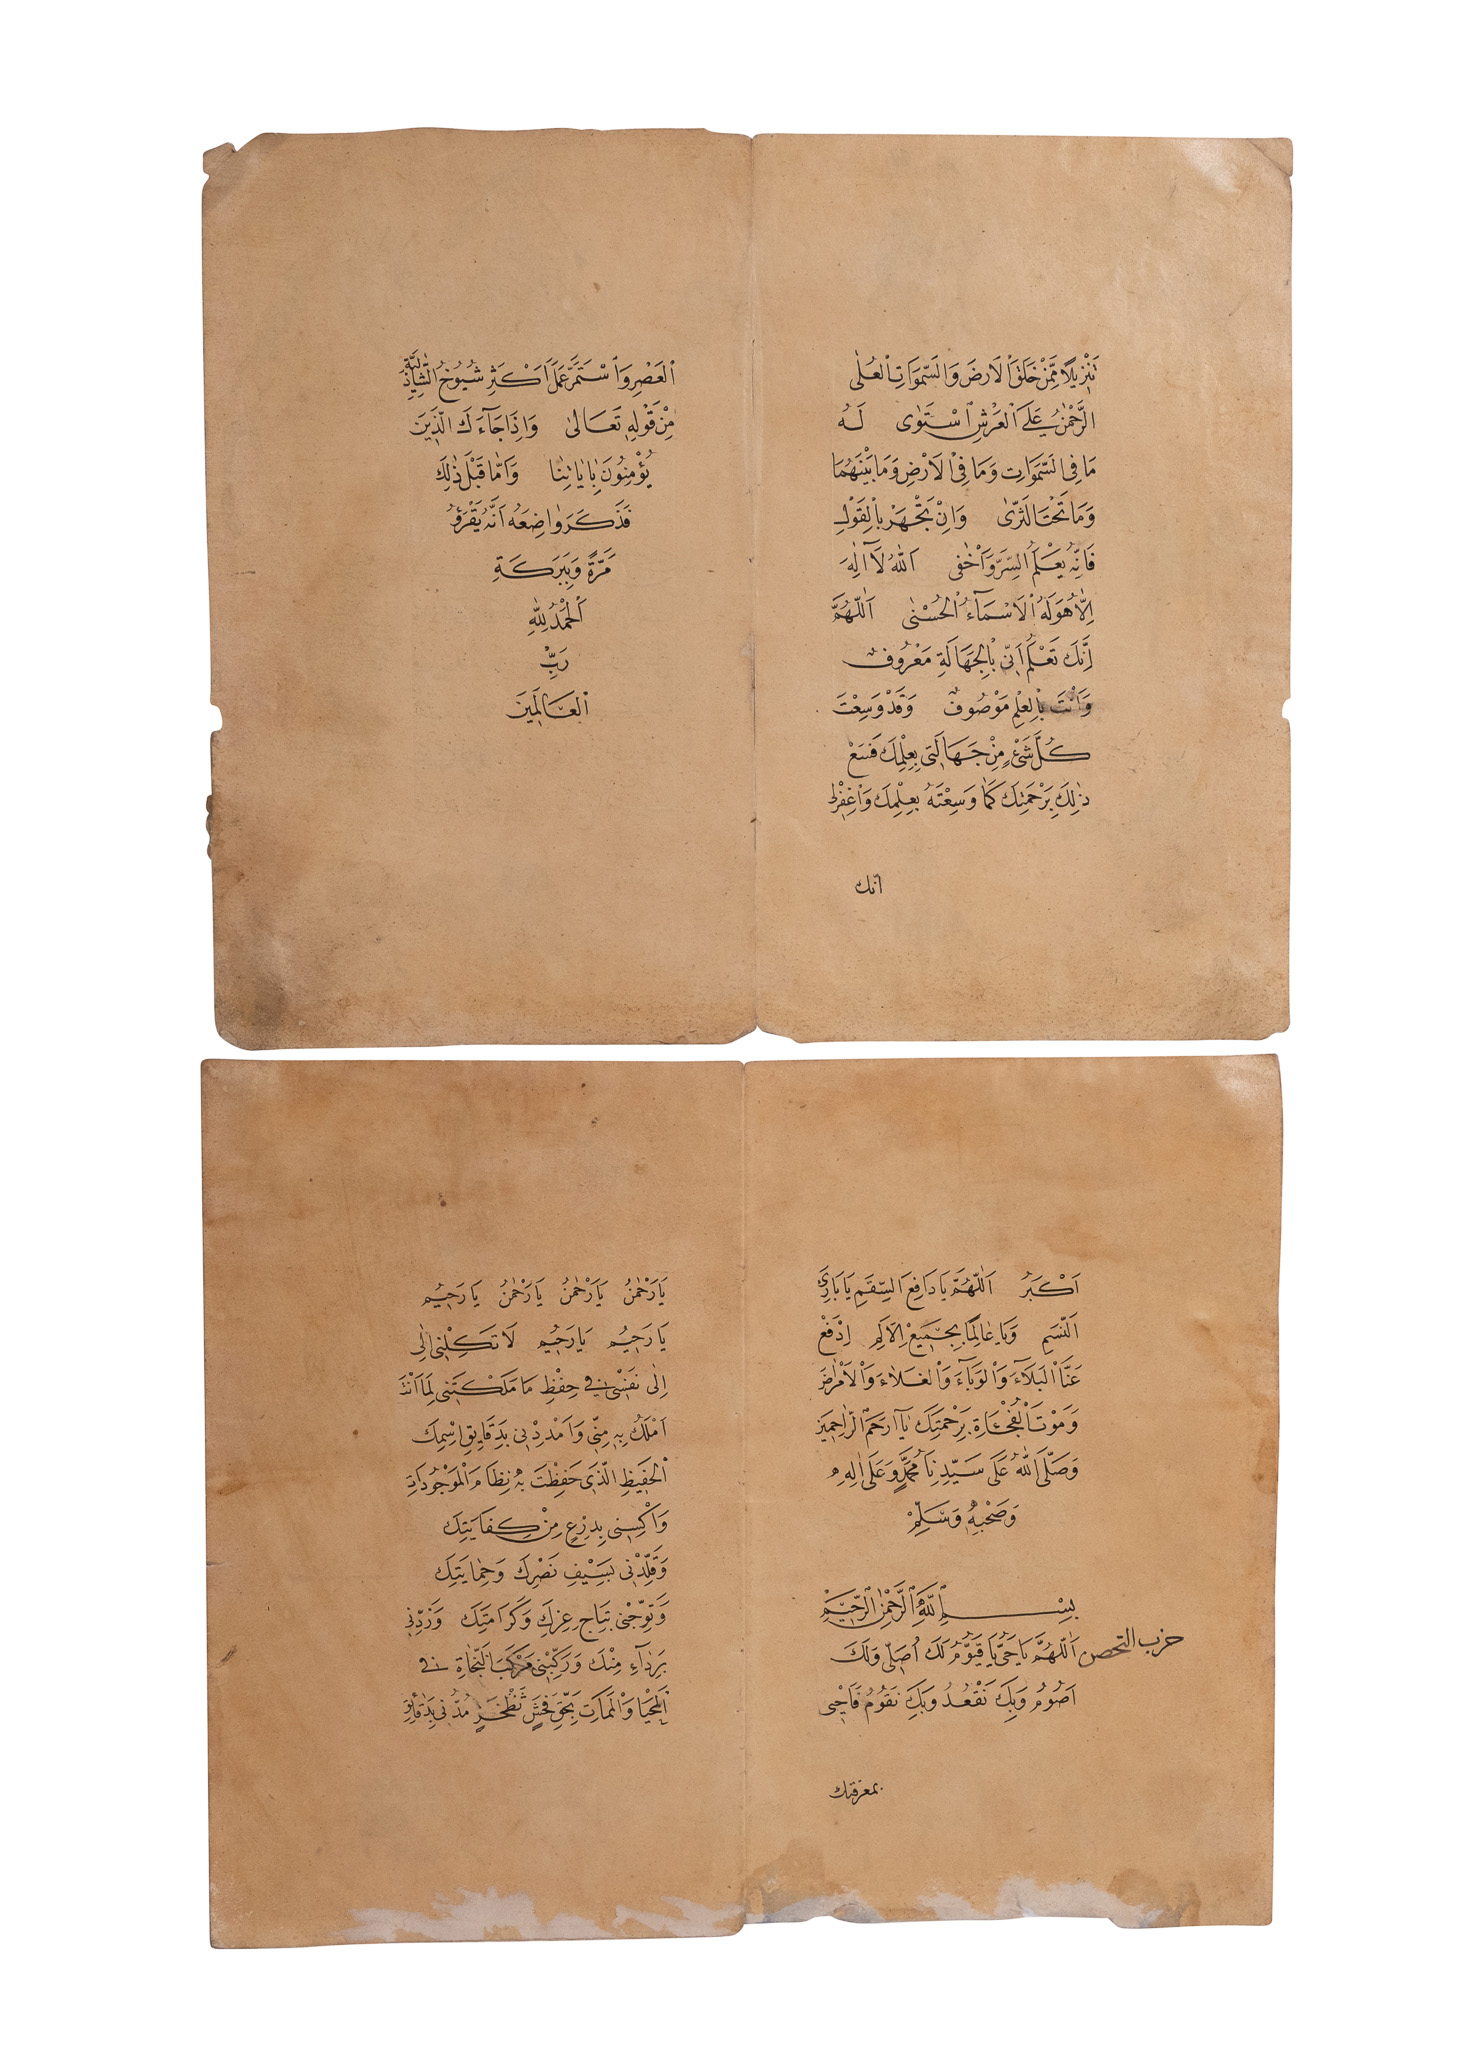 تَنْزِيلًا مِمَّنْ خَلَقَ الْاَرْضَ وَالسَّمٰوَاتِ الْعُلٰى
الرَّحْمٰنُ عَلَى الْعَرْشِ اسْتَوٰى لَهُ
مَا فِى السَّمٰوَاتِ وَمَا فِى الْاَرْضِ وَمَا بَيْنَهُمَا
وَمَا تَحْتَ الثَّرٰى وَاِنْ تَجْهَرْ بِالْقَوْلِ
فَاِنَّهُ يَعْلَمُ السِّرَّ وَاَخْفٰى اَللّٰهُ لَآ اِلٰهَ
اِلَّا هُوَ لَهُ الْاَسْمَآءُ الْحُسْنٰى اَللّٰهُمَّ
اِنَّكَ تَعْلَمُ اَنّٖى بِالْجَهَالَةِ مَعْرُوفٌ
وَاَنْتَ بِالْعِلْمِ مَوْصُوفٌ وَقَدْ وَسِعْتَ
كُلَّ شَىْءٍ مِنْ جَهَالَتٖى بِعِلْمِكَ فَسَعْ
ذٰلِكَ بِرَحْمَتِكَ كَمَا وَسِعْتَهُ بِعِلْمِكَ وَاغْفِرْلٖى
انّك
الْعَصْرِ وَاسْتَمَرَّ عَمَلُ اَكْثَرِ شُيُوخُ الشَّاذِلِيَّةِ
مِنْ قَوْلِهٖ تَعَالٰى وَاِذَا جَآءَكَ الَّذٖينَ
يُؤْمِنُونَ بِاٰيَاتِنَا وَاَمَّا قَبْلَ ذٰلِكَ
فَذَكَرَ وَاضِعُهُ اَنَّهُ يَقْرَؤُ
مَرَّةً وَبِبَرَكَةِ
اَلْحَمْدُ لِلّٰهِ
رَبِّ
الْعَالَمٖينَ
اَكْبَرُ اَللّٰهُمَّ يَا دَافِعَ السَّقَمِ يَا بَارِىَ
النَّسَمِ وَيَا عَالِمًا بِجَمٖيعِ الْاَلَمِ اِدْفَعْ
عَنَّا الْبَلَآءَ وَالْوَبَآءَ وَالْغَلَاءَ وَالْاَمْرَاضَ
وَمَوْتَ الْفُجْئَاةِ بِرَحْمَتِكَ يَآ اَرْحَمَ الرَّاحِمٖينَ
وَصَلَّى اللّٰهُ عَلٰى سَيِّدِنَا مُحَمَّدٍ وَعَلٰى اٰلِهٖ
وَصَحْبِهٖ وَسَلَّمْ
بِسْمِ اللّٰهِ الرَّحْمٰنِ الرَّحٖيمِ
حزب التحصن اَللّٰهُمَّ يَا حَىُّ يَا قَيُّومُ لَكَ اُصَلّٖى وَلَكَ
اَصُومُ وَبِكَ نَقْعُدُ وَبِكَ نَقُومُ فَاَحْيٖى
بمعرفتك
يَا رَحْمٰنُ يَا رَحْمٰنُ يَا رَحْمٰنُ يَا رَحٖيمُ
يَا رَحٖيمُ يَا رَحٖيمُ لَا تَكِلْنٖى اِلٰى
اِلٰى نَفْسٖى فٖى حِفْظِ مَا مَلَكْتَنٖى لِمَا اَنْتَ
اَمْلَكُ بِهٖ مِنّٖى وَاَمْدِدْنٖى بِدَقَايِقِ اِسْمِكَ
الْحَفٖيظِ الَّذٖى حَفِظْتَ بِهٖ نِظَامَ الْمَوْجُودَاتِ
وَاكْسِنٖى بِدِرْعٍ مِنْ كِفَايَتِكَ
وَقَلِّدْنٖى بِسَيْفِ نَصْرِكَ وَحِمَايَتِكَ
وَتَوِّجْنٖى بِتَاجِ عِزِّكَ وَكَرَامَتِكَ وَرَدِّنٖى
بِرِدَآءٍ مِنْكَ وَرَكِّبْنٖى مَرْكَبَ النَّجَاةِ فٖى
الْمَحْيَا وَالْمَمَاتِ بِحَقِّ فَجَشٍ ثَظْخَزٍ مُدَّنٖى بِدَقَائِقِ